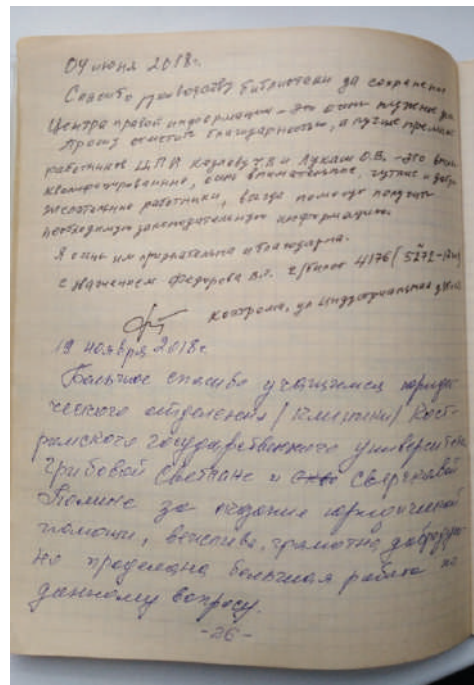 04 июня 2018г.
Спасибо руководству библиотеки за сохранение
Центра правой информации - это очень нужное
Прошу отметить благодарностью, а лучше
работников ЦПИ Козлову Т.В и Лукаш О.В. - это
квалифицированные, очень внимательные, чуткие и добро
желательные работники, всегда помогут получить
необходимую законодательную информацию.
Я очень им признательна и благодарна.
С уважением Федорова В.А. ч/билет 4176
Кострома, ул Индустриальная
19 ноября 2018г.
Большое спасибо учащимся юриди
ческого отделения (клиники) Кост
ромского государственного университета
Грибовой Светлане и Сверчковой
Полине за оказание юридической
помощи, вежливо, грамотно,
но проделана большая работа по
данному вопросу.
-26-